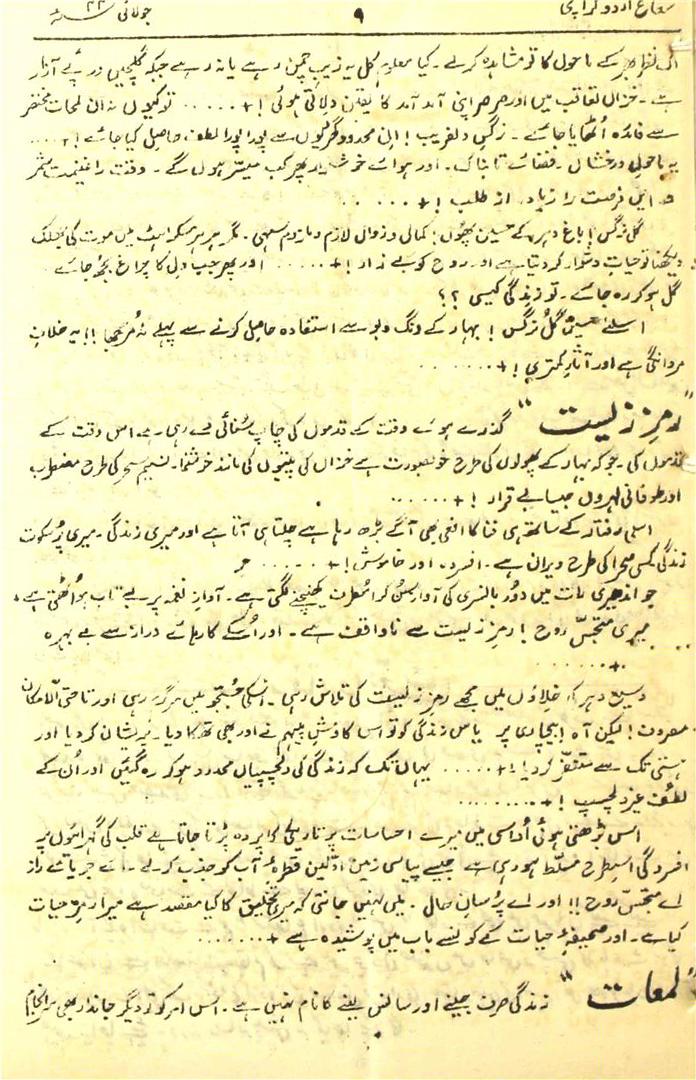 شعاع اردو کراچی ۹ جولائی ۴۴ء
اک نظر بھر کے ماحول کا تو مشاہدہ کرلے۔ کیا معلوم کل یہ زیبِ چمن رہے یا نہ رہے جبکہ گلچیں درپئے آزار
ہے۔ خزاں تعاقب میں اور صرصر اپنی آمد آمد کا یقین دلاتی ہوئی!+..... تو کیوں نہ ان لمحات مختصر
سے فائدہ اُٹھایا جائے۔ نرگسِ دلفریب! ان محدود گھڑیوں سے پورا پورا لطف حاصل کیا جائے!+....
یہ ماحولِ درخشاں۔ فضائے تابناک۔ اور ہوائے خوشگوار پھر کب میسّر ہوں گے۔ وقت را غنیمت شمر
ایں فرصت را زیادہ از طلب!+.....
گلِ نرگس! باغِ دہر کے حسین پھول! کمال و زوال لازم و ملزوم سہی۔ مگر ہر ہر مسکراہٹ میں موت کی جھلک
دیکھنا تو حیات دشوار کردیتا ہے اور روح کو بے زار!+..... اور پھر جب دل کا چراغ بجھ جائے
گل ہو کر رہ جائے۔ تو زندگی کیسی؟؟
اسلئے حسین گلِ نرگس! بہار کے رنگ و بو سے استفادہ حاصل کرنے سے پہلے نہ مُرجھا!! یہ خلافِ
مردانگی ہے اور آثارِ کمتری!+.......
"رمزِ زیست" گذرے ہوئے وقت کے قدموں کی چاپ سُنائی دے رہی ہے اس وقت کے
قدموں کی۔ جو کہ بہار کے پھولوں کی طرح خوبصورت ہے خزاں کی پتیوں کی مانند خوشنما۔ نسیم سحر کی طرح مضطرب
اور طوفانی لہروں جیسا بے قرار!+......
اسی رفتار کے ساتھ ہی فنا کا افعی بھی آگے بڑھ رہا ہے چلتا ہی آتا ہے اور میری زندگی۔ میری پُرسکوت
زندگی کسی صحرا کی طرح ویران ہے۔ افسردہ اور خاموش!+......
جو اندھیری رات میں دُور بانسری کی آواز سُن کر اسُطرف کھنچنے لگتی ہے۔ آوازِ نغمہ پر بے تاب ہو اُٹھتی ہے۔
میری متجسّس روح! رمزِ زیست سے ناواقف ہے۔ اور اُسکے کارہائے دراز سے بے بہرہ
+......
وسیع دہر کے خلاؤں میں مجھے رمزِ زیست کی تلاش رہی۔ اسکی جُستجو میں سرگرم رہی اور تا حتیٰ الامکان
مصروف! لیکن آہ! بیچاری پر یاس زندگی کو تو اس کاوشِ پیہم نے اور بھی تھکا دیا۔ پریشان کردیا اور
ہستی تک سے متنفّر کردیا!+..... یہاں تک کہ زندگی کی دلچسپیاں محدود ہوکر رہ گئیں اور اُن کے
لطف غیر دلچسپ!+.......
اس بڑھتی ہوئی اُداسی میں میرے احساسات پر تاریکی کا پردہ پڑتا جاتا ہے قلب کی گہرائیوں پر
افسردگی اسطرح مسلّط ہورہی ہے جیسے پیاسی زمین اوّلین قطرۂ آب کو جذب کرلے۔ اے جویائے راز
اے متجسّس روح!! اور اے پُرسانِ حال۔ میں نہیں جانتی کہ میری تخلیق کا کیا مقصد ہے میرا رمزِ حیات
کیا ہے۔ اور صحیفۂ حیات کے کونسے باب میں پوشیدہ ہے+......
"لمعات" زندگی صرف جینے اور سانس لینے کا نام نہیں ہے۔ اس امر کو تو دیگر جاندار بھی سرانجام